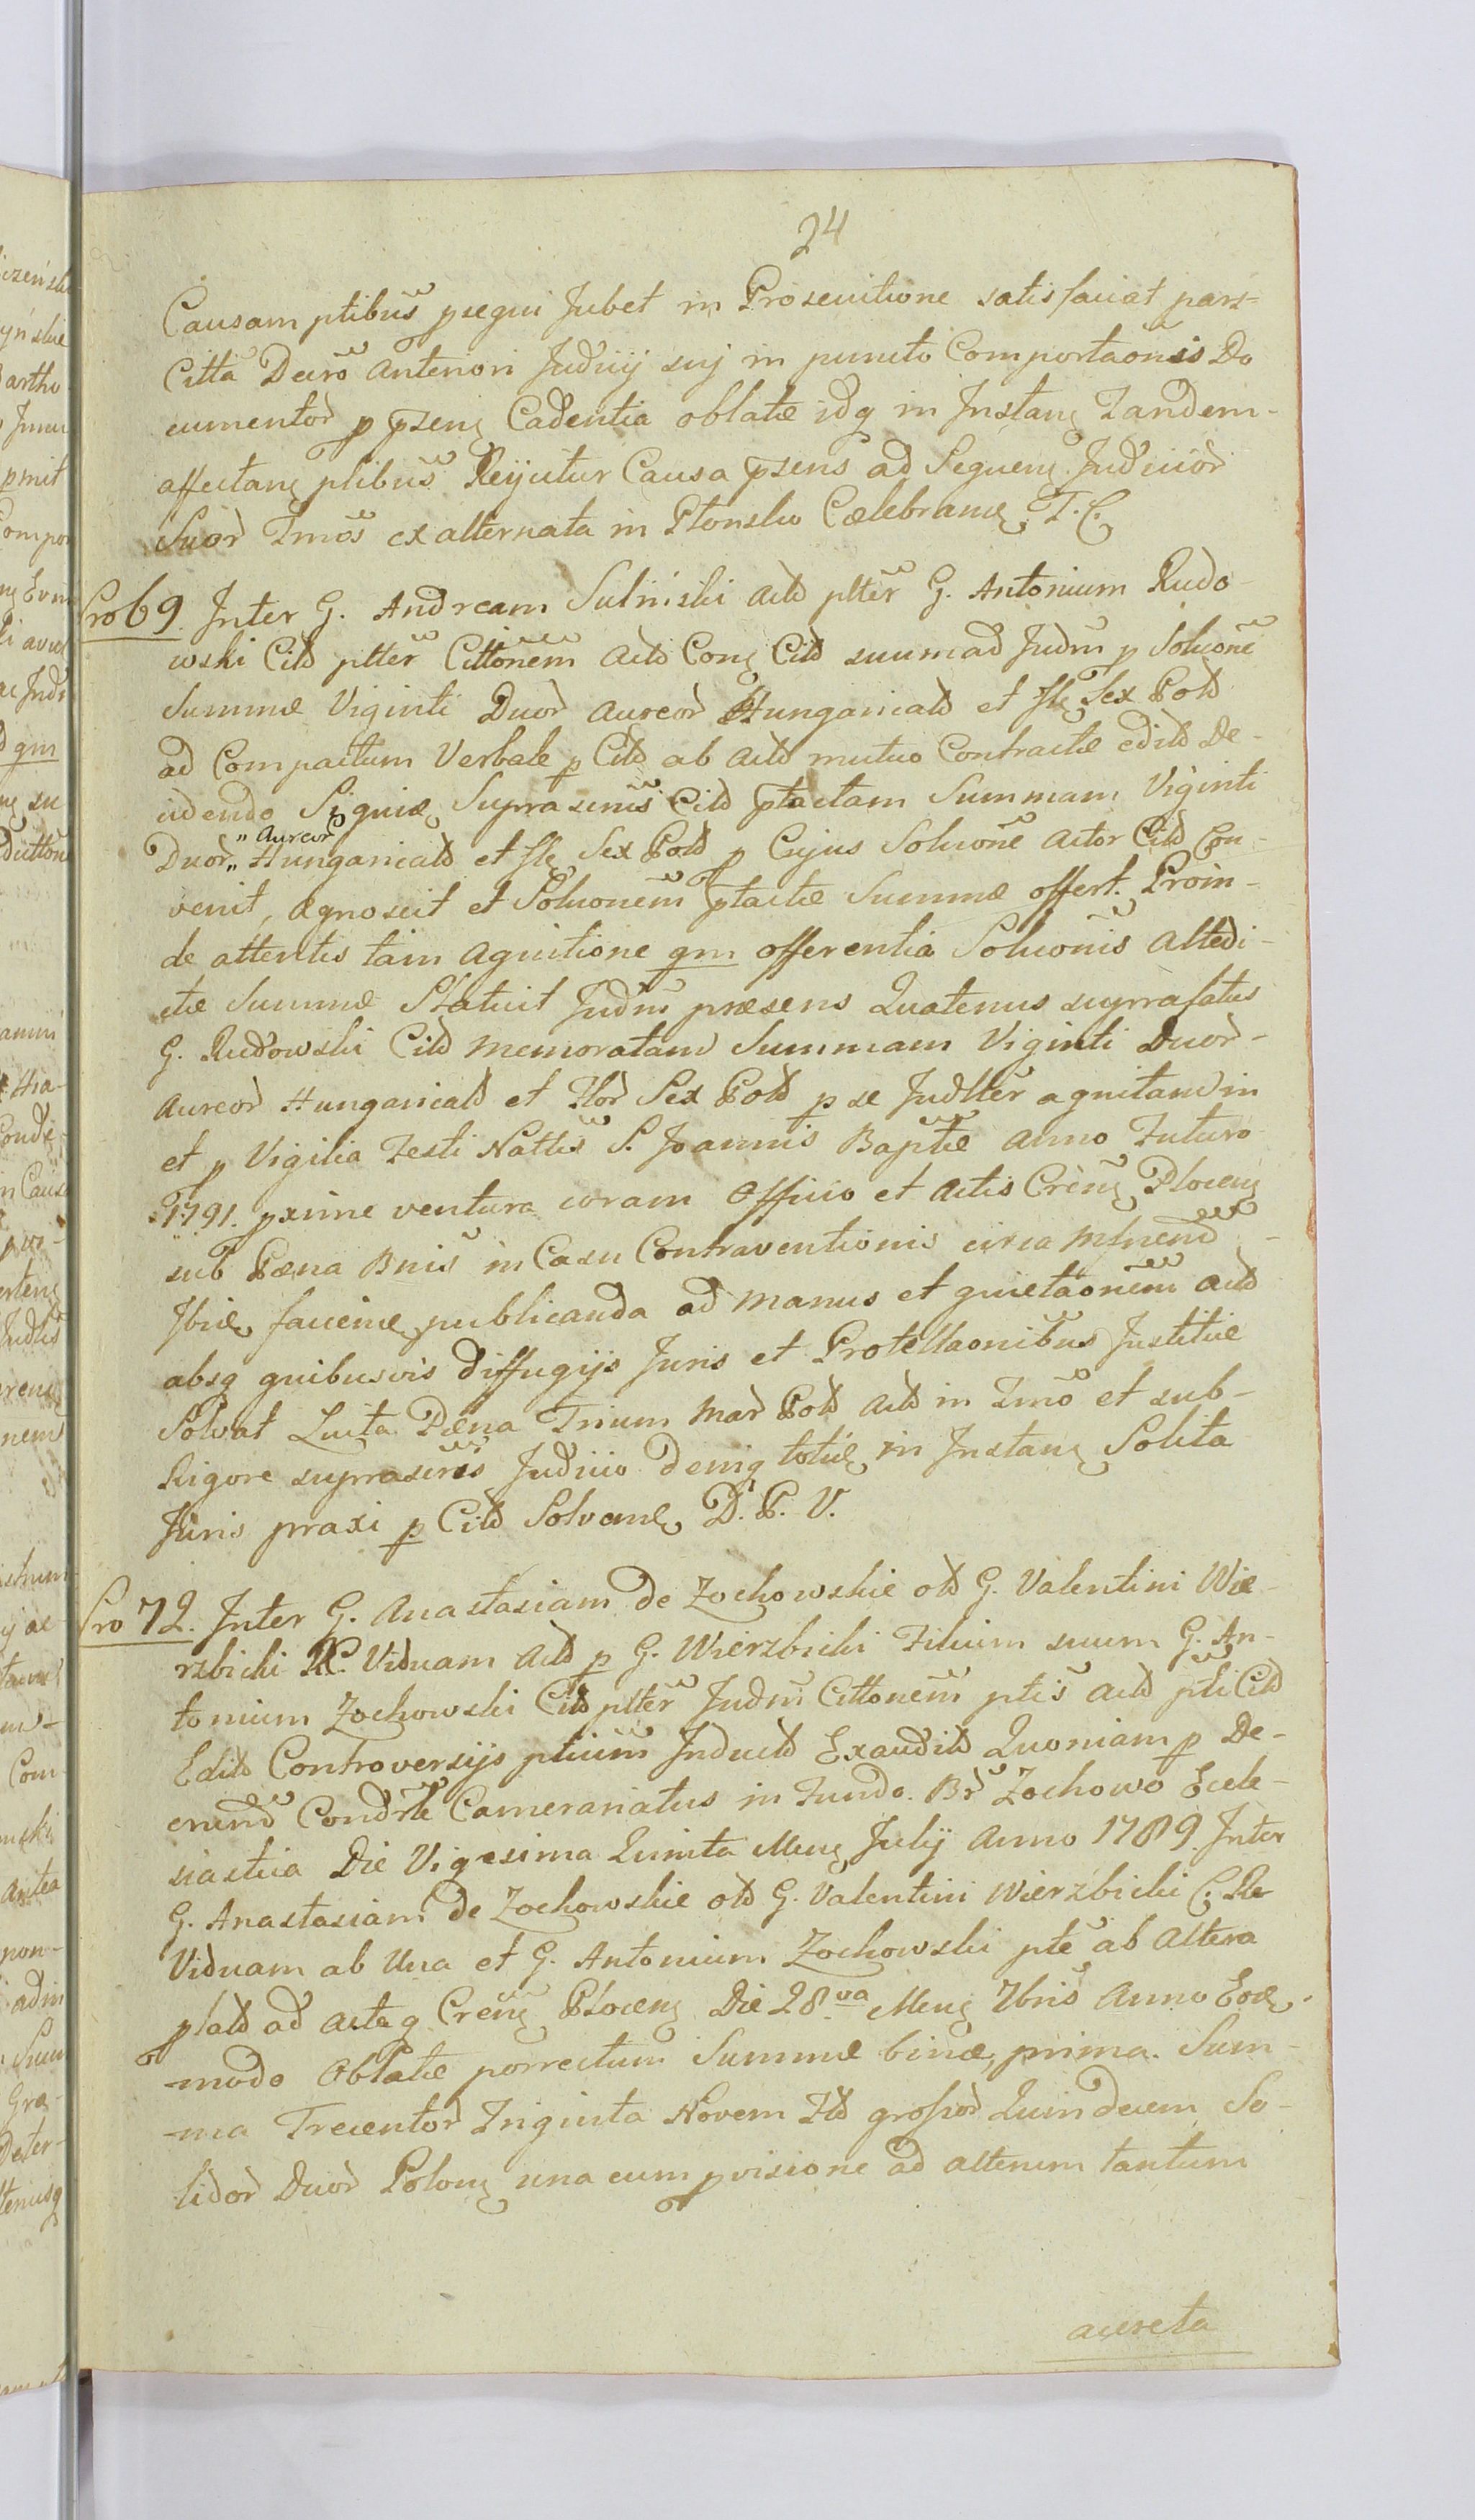 24
Causam ptibus prosequi Jubet in Prosecutione satisfaciat pars-
Citta Decro anteriori Judicij suj in puncto Comportaonis Do
cumentor p psens Cadentia oblatæ idq in Instans Tandem-
affectans ptibus Reijcitur Causa psens ad Sequens Judicior
Suor Tmos ex alternata in Płonsko Cælebrame T. C.
Pro 69. Inter G. Andream Suliński Actt pltter G. Antonium Rudo-
wski Citt pltter Cittonem Actt Cong Citt suum ad Judm p Soluone
Summæ Viginti Duor aureor Hungaricalt et fle Sex Polt
ad Compactum Verbale p Citt ab Actt mutuo Contractæ edit De-
cidendo Siquidem Suprascrius Citt ptactam Summam Viginti
Duor „ Aureor „ Hungaricalt et fle Sex Polt p Cujus Soluone Actor Citt Con-
venit, agnoscit et Soluonem ptactæ Summæ offert. Proin-
de attentis tam agnitione qm offerentia Soluonis altedi-
ctæ Summæ Statuit Judm præsens Quatenus suprafatus
G. Rudowski Citt memoratam Summam Viginti Duor-
aureor Hungaricalt et Flor Sex Polt p se Judltter agnitam in
et p Vigilia Festi Nattis S. Joannis Baptæ anno Futuro
1791. pxime ventura coram Officio et actis Crens Plocens
sub Pæna Bnis in Casu Contraventionis circa Mlnend-
Jbidem facieme publicanda ad manus et quietaonem actt
absq quibusvis diffugijs Juris et Protellaonibus Justitiæ
Solvat Luita Pæna Trium Mar Polt Actt in Tmo et sub-
Rigore suprascris Judicio deniq toties in Instans Solita
Juris praxi p Citt Solveme D. P. V.
Pro 72. Inter G. Anastasiam de Zochowskie ott G. Valentini Wie-
rzbicki R. Viduam Actt p G. Wierzbicki Filium suum G. An-
tonium Zochowski Citt pltter Judm Cittonem ptis actt pti Citt
Edit Controversijs ptium Inductt Exauditt Quoniam p De-
crend Condrle Camerariatus in Fundo Br Zochowo Eccle-
siastica Die Vigesima Quinta Mens Julij Anno 1789. Inter
G. Anastasiam de Zochowskie ott G. Valentini Wierzbicki C. Re
Viduam ab Una et G. Antonium Zochowski pte ab altera
platt ad Acta q Crens Plocens Die 28va Mens 7bris Anno Eode
modo Oblatæ porrectum Summæ binæ, prima. Sum-
ma Trecentor Triginta Novem Flt grossor Quindecem So-
lidor Duor Polong una cum pvisione ad alterum tantum
accreta